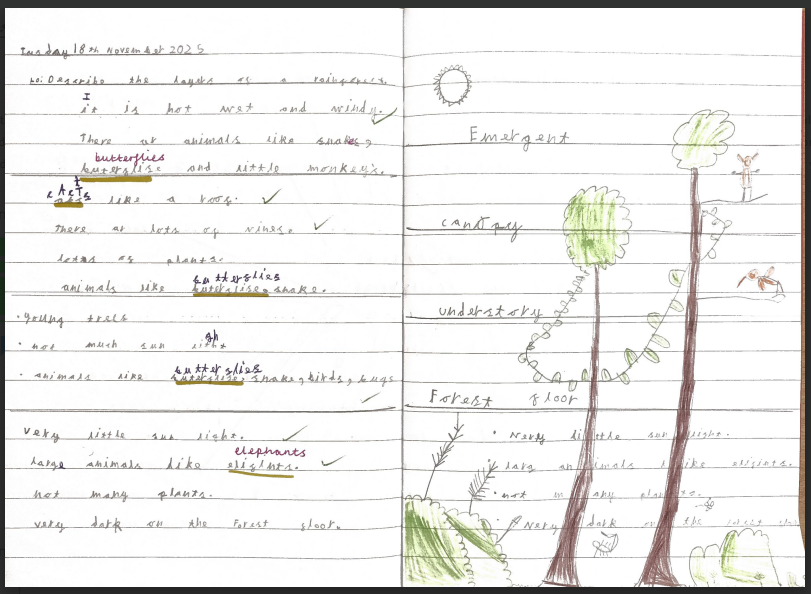 Tuesday 18th November 2025
Lo: Describe the layers of a rainforest.
I
it is hot wet and windy.
There ar animals like snakes,
butterflies
buterflise and little monkeys.
Acts like a roof.
there ar lots of vines.
lotts of plants.
butterflies
animals like buterflise, snake.
• young trees
gh
• not much sun light
butterflies
• animals like buterflise, snake, birds, bugs
very little sun light.
elephants
large animals like elifints.
not many plants.
very dark on the Forest floor.
Emergent
canopy
understory
Forest floor
• Nery little sun light.
• larg animals like elifints.
• not many plants.
• Nery dark on the forest